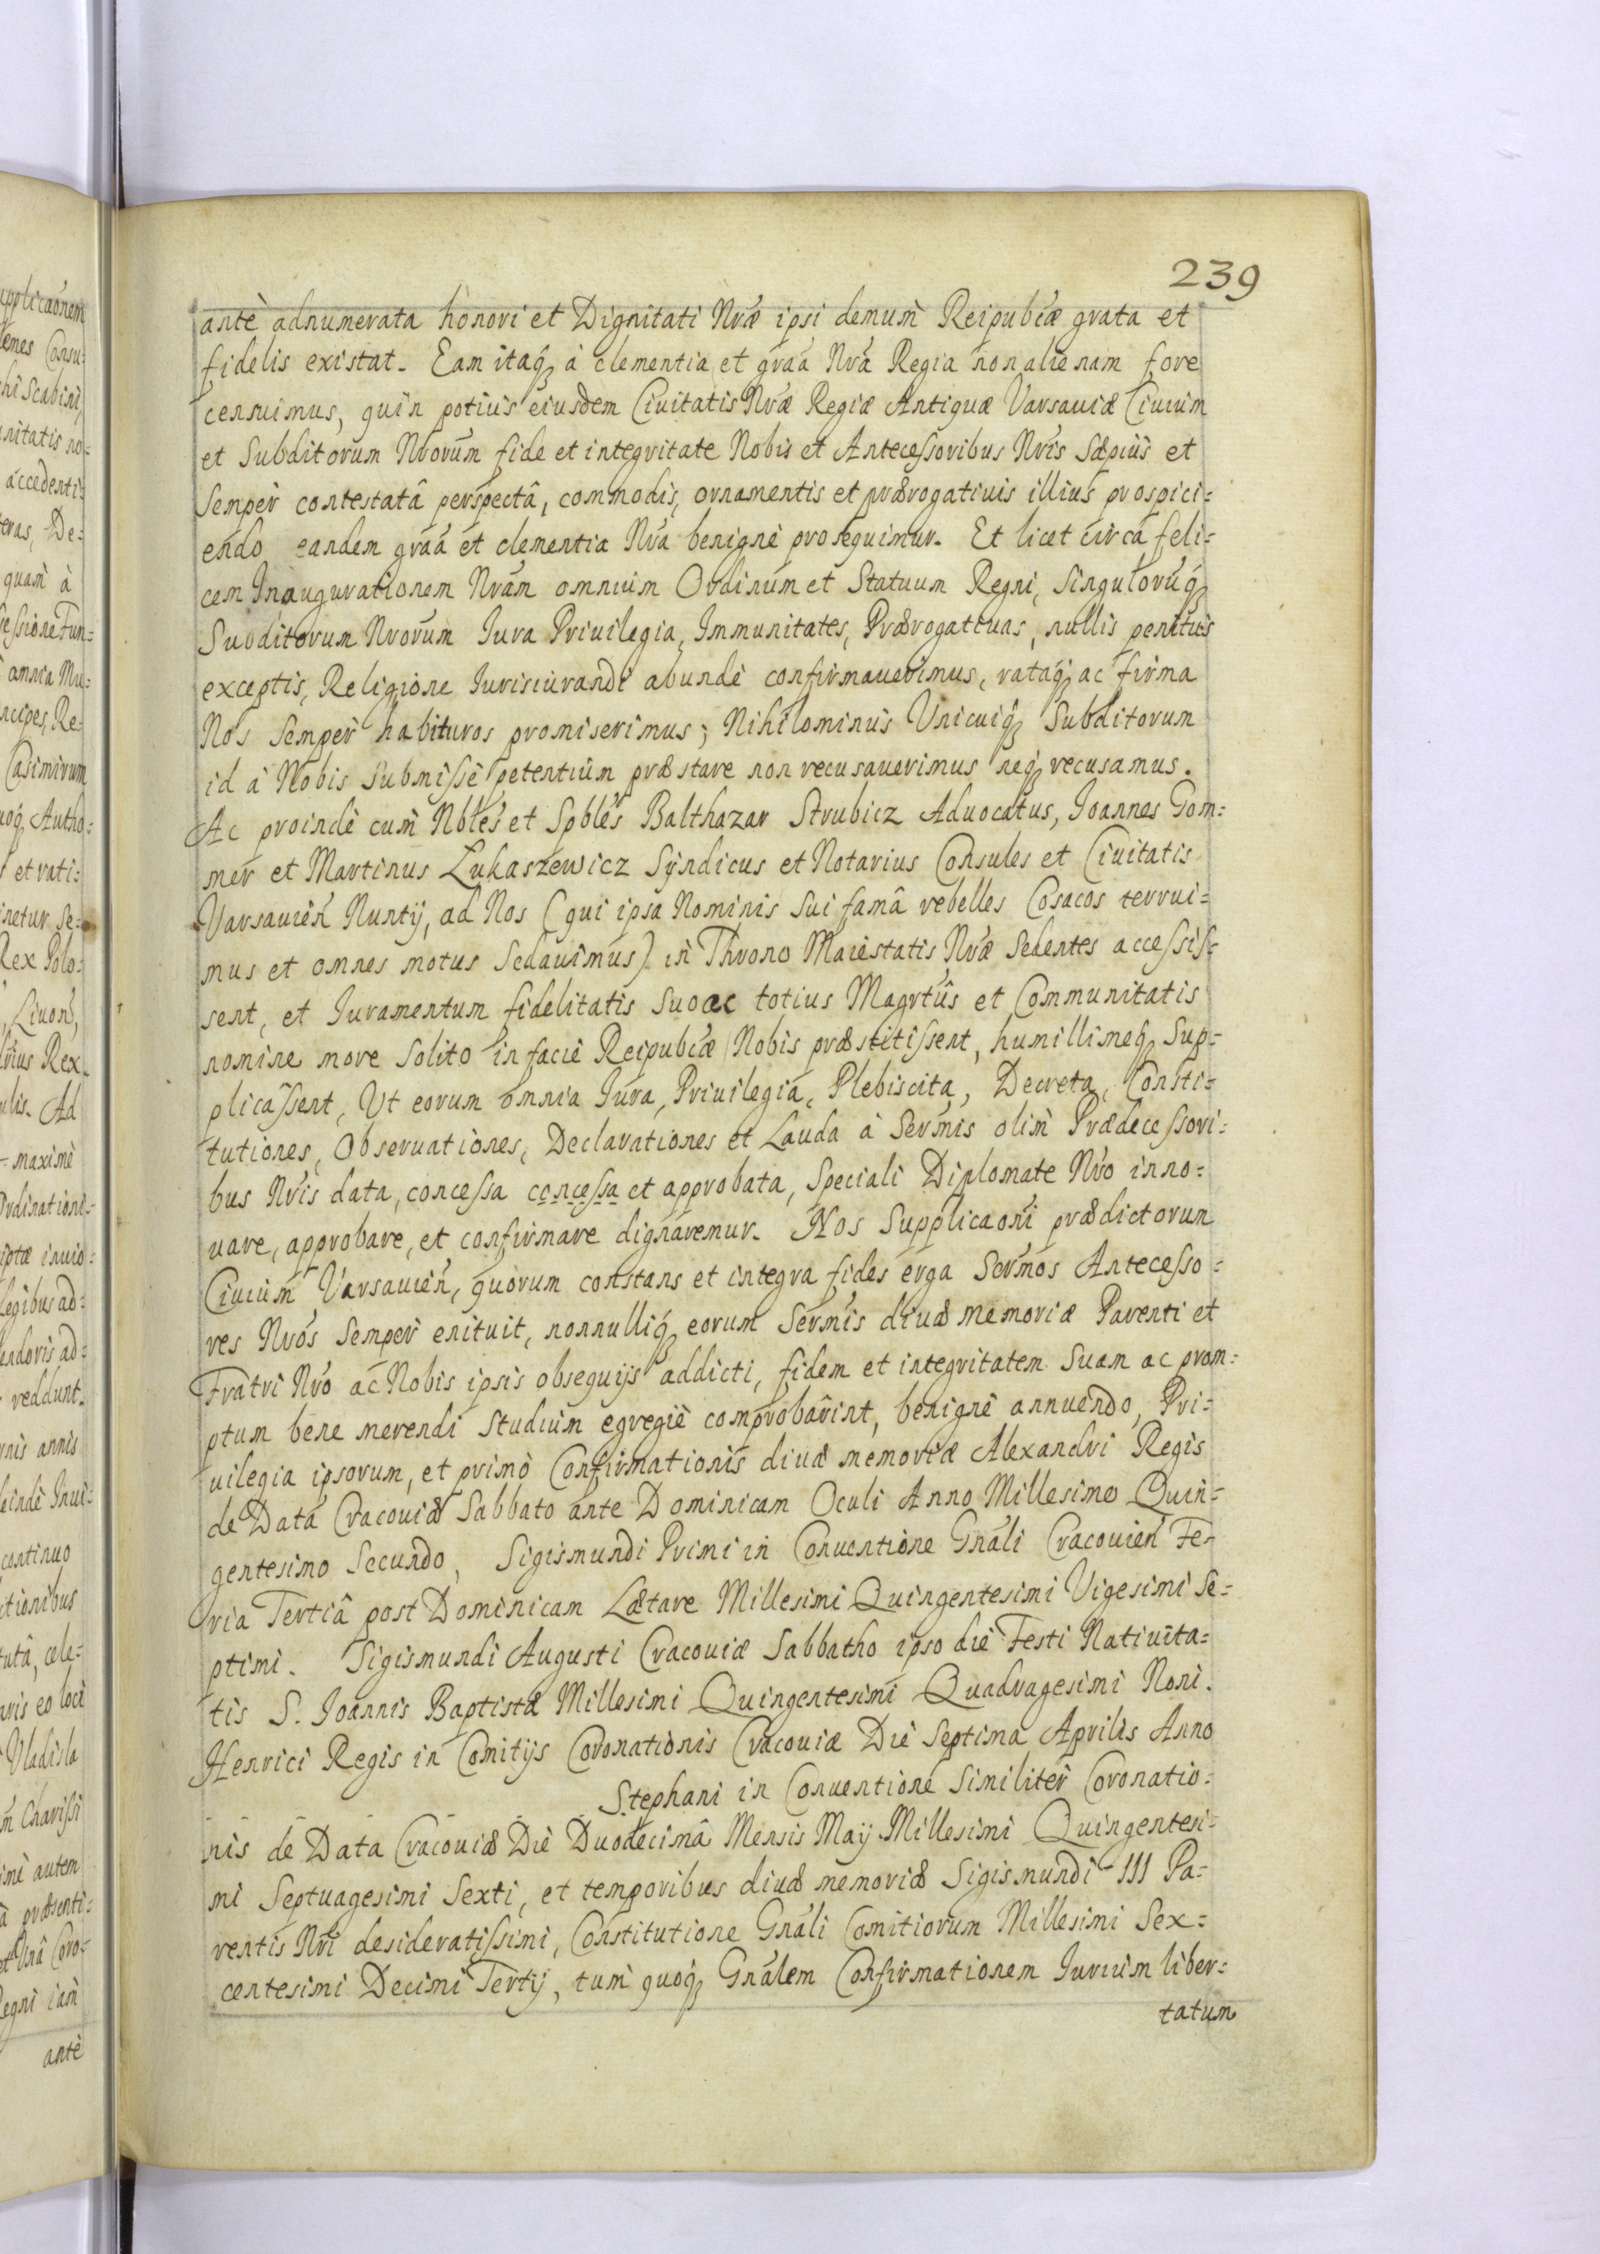 239
antè adnumerata honori et Dignitati Nræ ipsi demum̀ Reipublæ grata et
fidelis existat. Eam itaq; à clementia et graa Nra Regia non alienam fore
censuimus, quin potius eiusdem Ciuitatis Nræ Regiæ Antiquæ Varsauiæ Ciuium
et Subditorum Nrorum fide et integritate Nobis et Antecessoribus Nris Sæpius et
Semper contestatâ perspectâ, commodis, ornamentis et prærogatiuis illius prospici=
endo eandem graa et clementia Nra benignè prosequimur. Et licet circa feli=
cem Inaugurationem Nram omnium Ordinum et Statuum Regni, Singulorūq;
Subditorum Nrorum Iura Priuilegia, Immunitates, Prærogatiuas, nullis penitus
exceptis, Religione Iurisiurandi abundè confirmauerimus, rataq; ac firma
Nos Semper habituros promiserimus; Nihilominus Vnicuiq; Subditorum
id à Nobis Submissè petentium præstare non recusauerimus neq; recusamus.
Ac proindè cum Nbles et Spbles Balthazar Strubicz Aduocatus, Ioannes Gom=
mer et Martinus Lukaszewicz Syndicus et Notarius Consules et Ciuitatis
Varsauien Nuntij, ad Nos (qui ipsa Nominis Sui famâ rebelles Cosacos terrui=
mus et omnes motus Sedauimus) in Throno Maiestatis Nræ Sedentes accessis=
sent, et Iuramentum fidelitatis Suo ac totius Magrtus et Communitatis
nomine more Solito in facie Reipublæ Nobis præstitissent, humillimeq; Sup=
plicassent, Vt eorum omnia Iura, Priuilegia, Plebiscita, Decreta, Consti=
tutiones, Obseruationes, Declarationes et Lauda à Sermis olim Prædecessori=
bus Nris data, concessa concessa et approbata, Speciali Diplomate Nro inno=
uare, approbare, et confirmare dignaremur. Nos Supplicaoni prædictorum
Ciuium Varsauien, quorum constans et integra fides erga Sermos Antecesso=
res Nros Semper enituit, nonnulliq; eorum Sermis diuæ memoriæ Parenti et
Fratri Nro ac Nobis ipsis obsequijs addicti, fidem et integritatem Suam ac prom=
ptum bene merendi Studium egregiè comprobarint, benignè annuendo, Pri=
uilegia ipsorum, et primò Confirmationis diuæ memoriæ Alexandri Regis
de Data Cracouiæ Sabbato ante Dominicam Oculi Anno Millesimo Quin=
gentesimo Secundo, Sigismundi Primi in Conuentione Gnali Cracouien Fe=
ria Tertiâ post Dominicam Lætare Millesimi Quingentesimi Vigesimi Se=
ptimi. Sigismundi Augusti Cracouiæ Sabbatho ipso die Festi Natiuita=
tis S. Ioannis Baptistæ Millesimi Quingentesimi Quadragesimi Noni.
Henrici Regis in Comitijs Coronationis Cracouiæ Die Septima Aprilis Anno
Stephani in Conuentione Similiter Coronatio=
nis de Data Cracouiæ Die Duodecimâ Mensis Maij Millesimi Quingentesi=
mi Septuagesimi Sexti, et temporibus diuæ memoriæ Sigismundi III Pa=
rentis Nri desideratissimi, Constitutione Gnali Comitiorum Millesimi Sex=
centesimi Decimi Tertij, tum quoq; Gnalem Confirmationem Iurium liber=
tatum